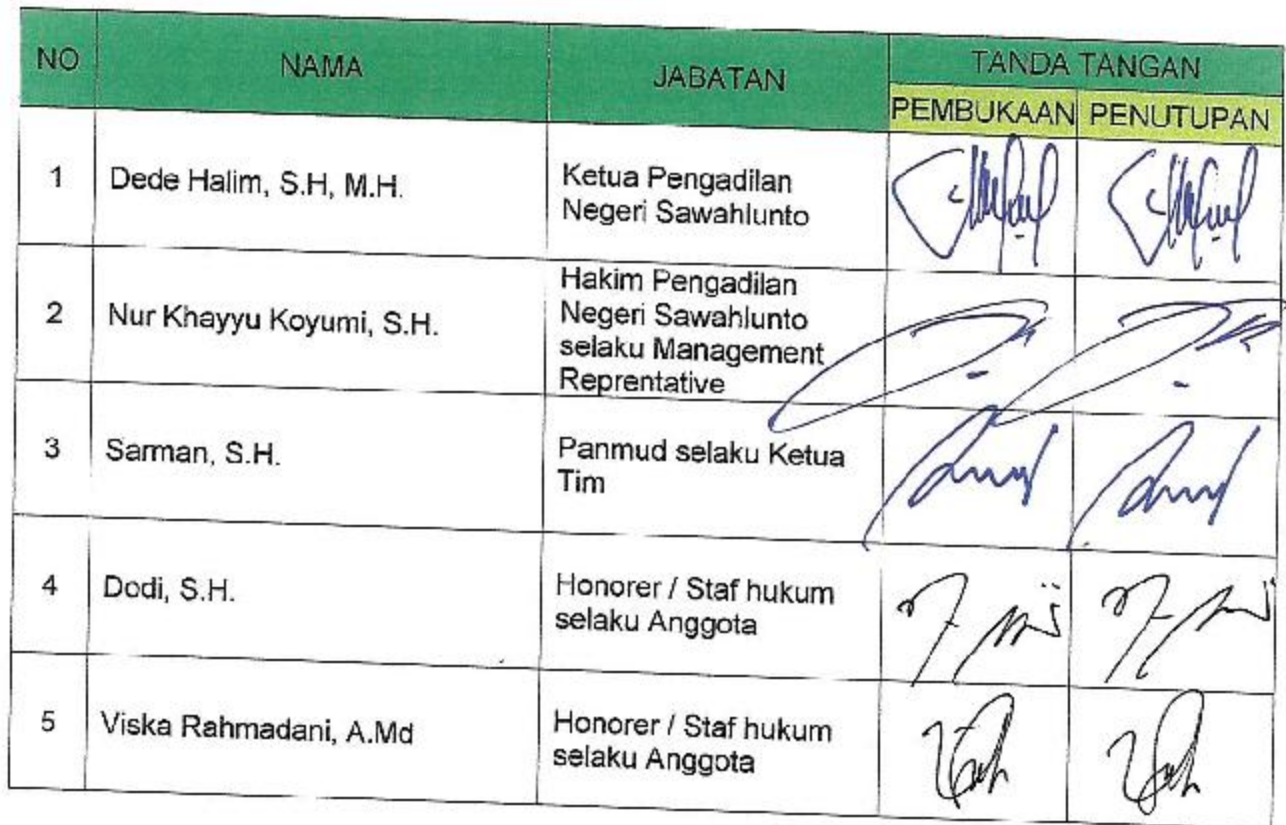 NO NAMA JABATAN TANDA TANGAN
PEMBUKAAN PENUTUPAN
1 Dede Halim, S.H, M.H. Ketua Pengadilan
Negeri Sawahlunto
2 Nur Khayyu Koyumi, S.H. Hakim Pengadilan
Negeri Sawahlunto
selaku Management
Reprentative
3 Sarman, S.H. Panmud selaku Ketua
Tim
4 Dodi, S.H. Honorer / Staf hukum
selaku Anggota
5 Viska Rahmadani, A.Md Honorer / Staf hukum
selaku Anggota